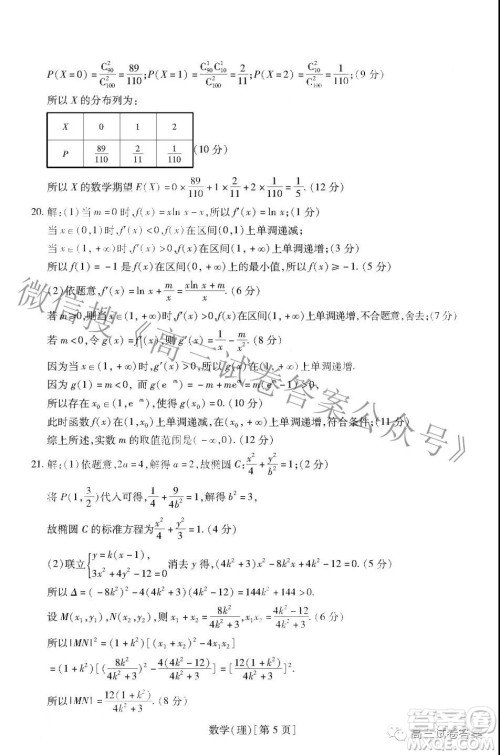 P(X=0)=C²₉₀/C²₁₀₀=89/110;P(X=1)=C¹₉₀C¹₁₀/C²₁₀₀=2/11;P(X=2)=C²₁₀/C²₁₀₀=1/110;(9 分)
所以 X 的分布列为:
X 0 1 2
P 89/110 2/11 1/110 (10 分)
所以 X 的数学期望 E(X)=0×89/110+1×2/11+2×1/110=1/5. (12 分)
20. 解:(1)当 m=0 时,f(x)=xln x-x,所以 f′(x)=ln x;(1 分)
当 x∈(0,1)时,f′(x)<0,f(x)在区间(0,1)上单调递减;
当 x∈(1,+∞)时,f′(x)>0,f(x)在区间(1,+∞)上单调递增;(3 分)
所以 f(1)=-1 是 f(x)在区间(0,+∞)上的最小值,所以 f(x)≥-1. (5 分)
(2)依题意,f′(x)=ln x+m/x=(xln x+m)/x. (6 分)
若 m≥0,则当 x∈(1,+∞)时,f′(x)>0,f(x)在区间(1,+∞)上单调递增,不合题意,舍去;(7 分)
若 m<0,令 g(x)=f′(x),则 g′(x)=1/x-m/x². (8 分)
因为当 x∈(1,+∞)时,g′(x)>0,所以 g(x)在(1,+∞)上单调递增.
因为 g(1)=m<0,而 g(e⁻ᵐ)=-m+meᵐ=
所以存在 x₀∈(1,e⁻ᵐ),使得 g(x₀)=0. (10 分)
此时函数 f(x)在(1,x₀)上单调递减,在(x₀,+∞)上单调递增,符合条件;(11 分)
综上所述,实数 m 的取值范围是(-∞,0). (12 分)
21. 解:(1)依题意,2a=4,解得 a=2,故椭圆 C:x²/4+y²/b²=1. (2 分)
将 P(1,3/2)代入可得,1/4+9/4b²=1,解得 b²=3,
故椭圆 C 的标准方程为x²/4+y²/3=1. (4 分)
(2)联立{y=k(x-1), 3x²+4y²-12=0 消去 y 得,(4k²+3)x²-8k²x+4k²-12=0. (5 分)
所以 Δ=(-8k²)²-4(4k²+3)(4k²-12)=144k²+144>0.
设 M(x₁,y₁),N(x₂,y₂),则 x₁+x₂=8k²/(4k²+3),x₁x₂=(4k²-12)/(4k²+3). (6 分)
所以|MN|²=(1+k²)[(x₁+x₂)²-4x₁x₂]
=(1+k²)[(8k²/(4k²+3))²-4(4k²-12)/(4k²+3)]=[12(1+k²)/(4k²+3)]².
所以|MN|=12(1+k²)/(4k²+3). (8 分)
数学(理)[第 5 页]
微信搜《高三试卷答案公众号》
高三试卷答案